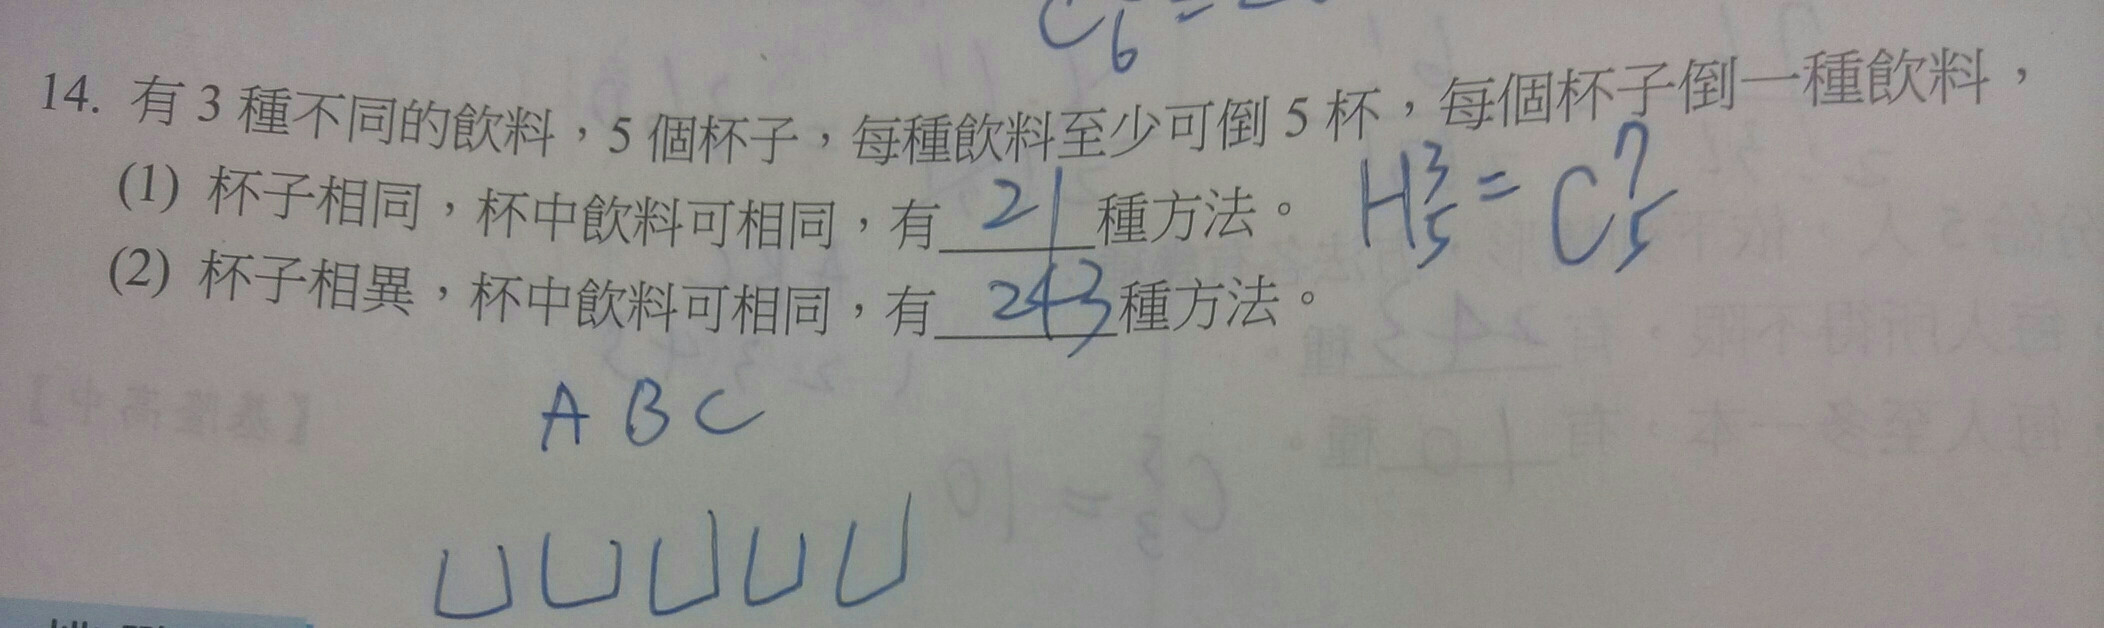 C 6 =
14. 有 3 種不同的飲料，5 個杯子，每種飲料至少可倒 5 杯，每個杯子倒一種飲料，
(1) 杯子相同，杯中飲料可相同，有 21 種方法。 H³₅ = C⁷₅
(2) 杯子相異，杯中飲料可相同，有 243 種方法。
A B C